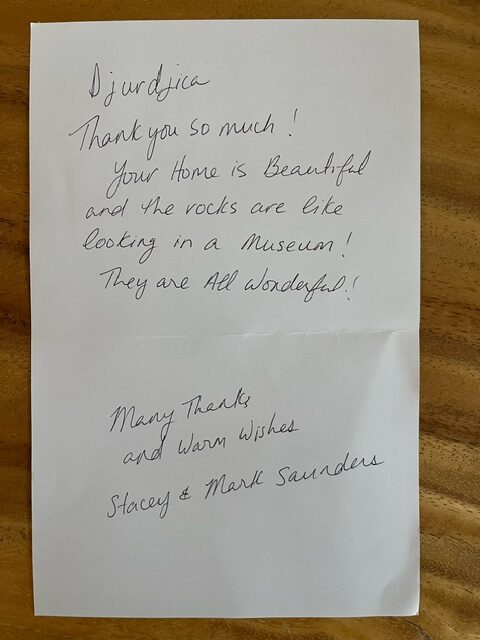 Djurdjica
Thank you so much!
Your Home is Beautiful
and the rocks are like
looking in a Museum!
They are All Wonderful!
Many Thanks
and Warm Wishes
Stacey & Mark Saunders